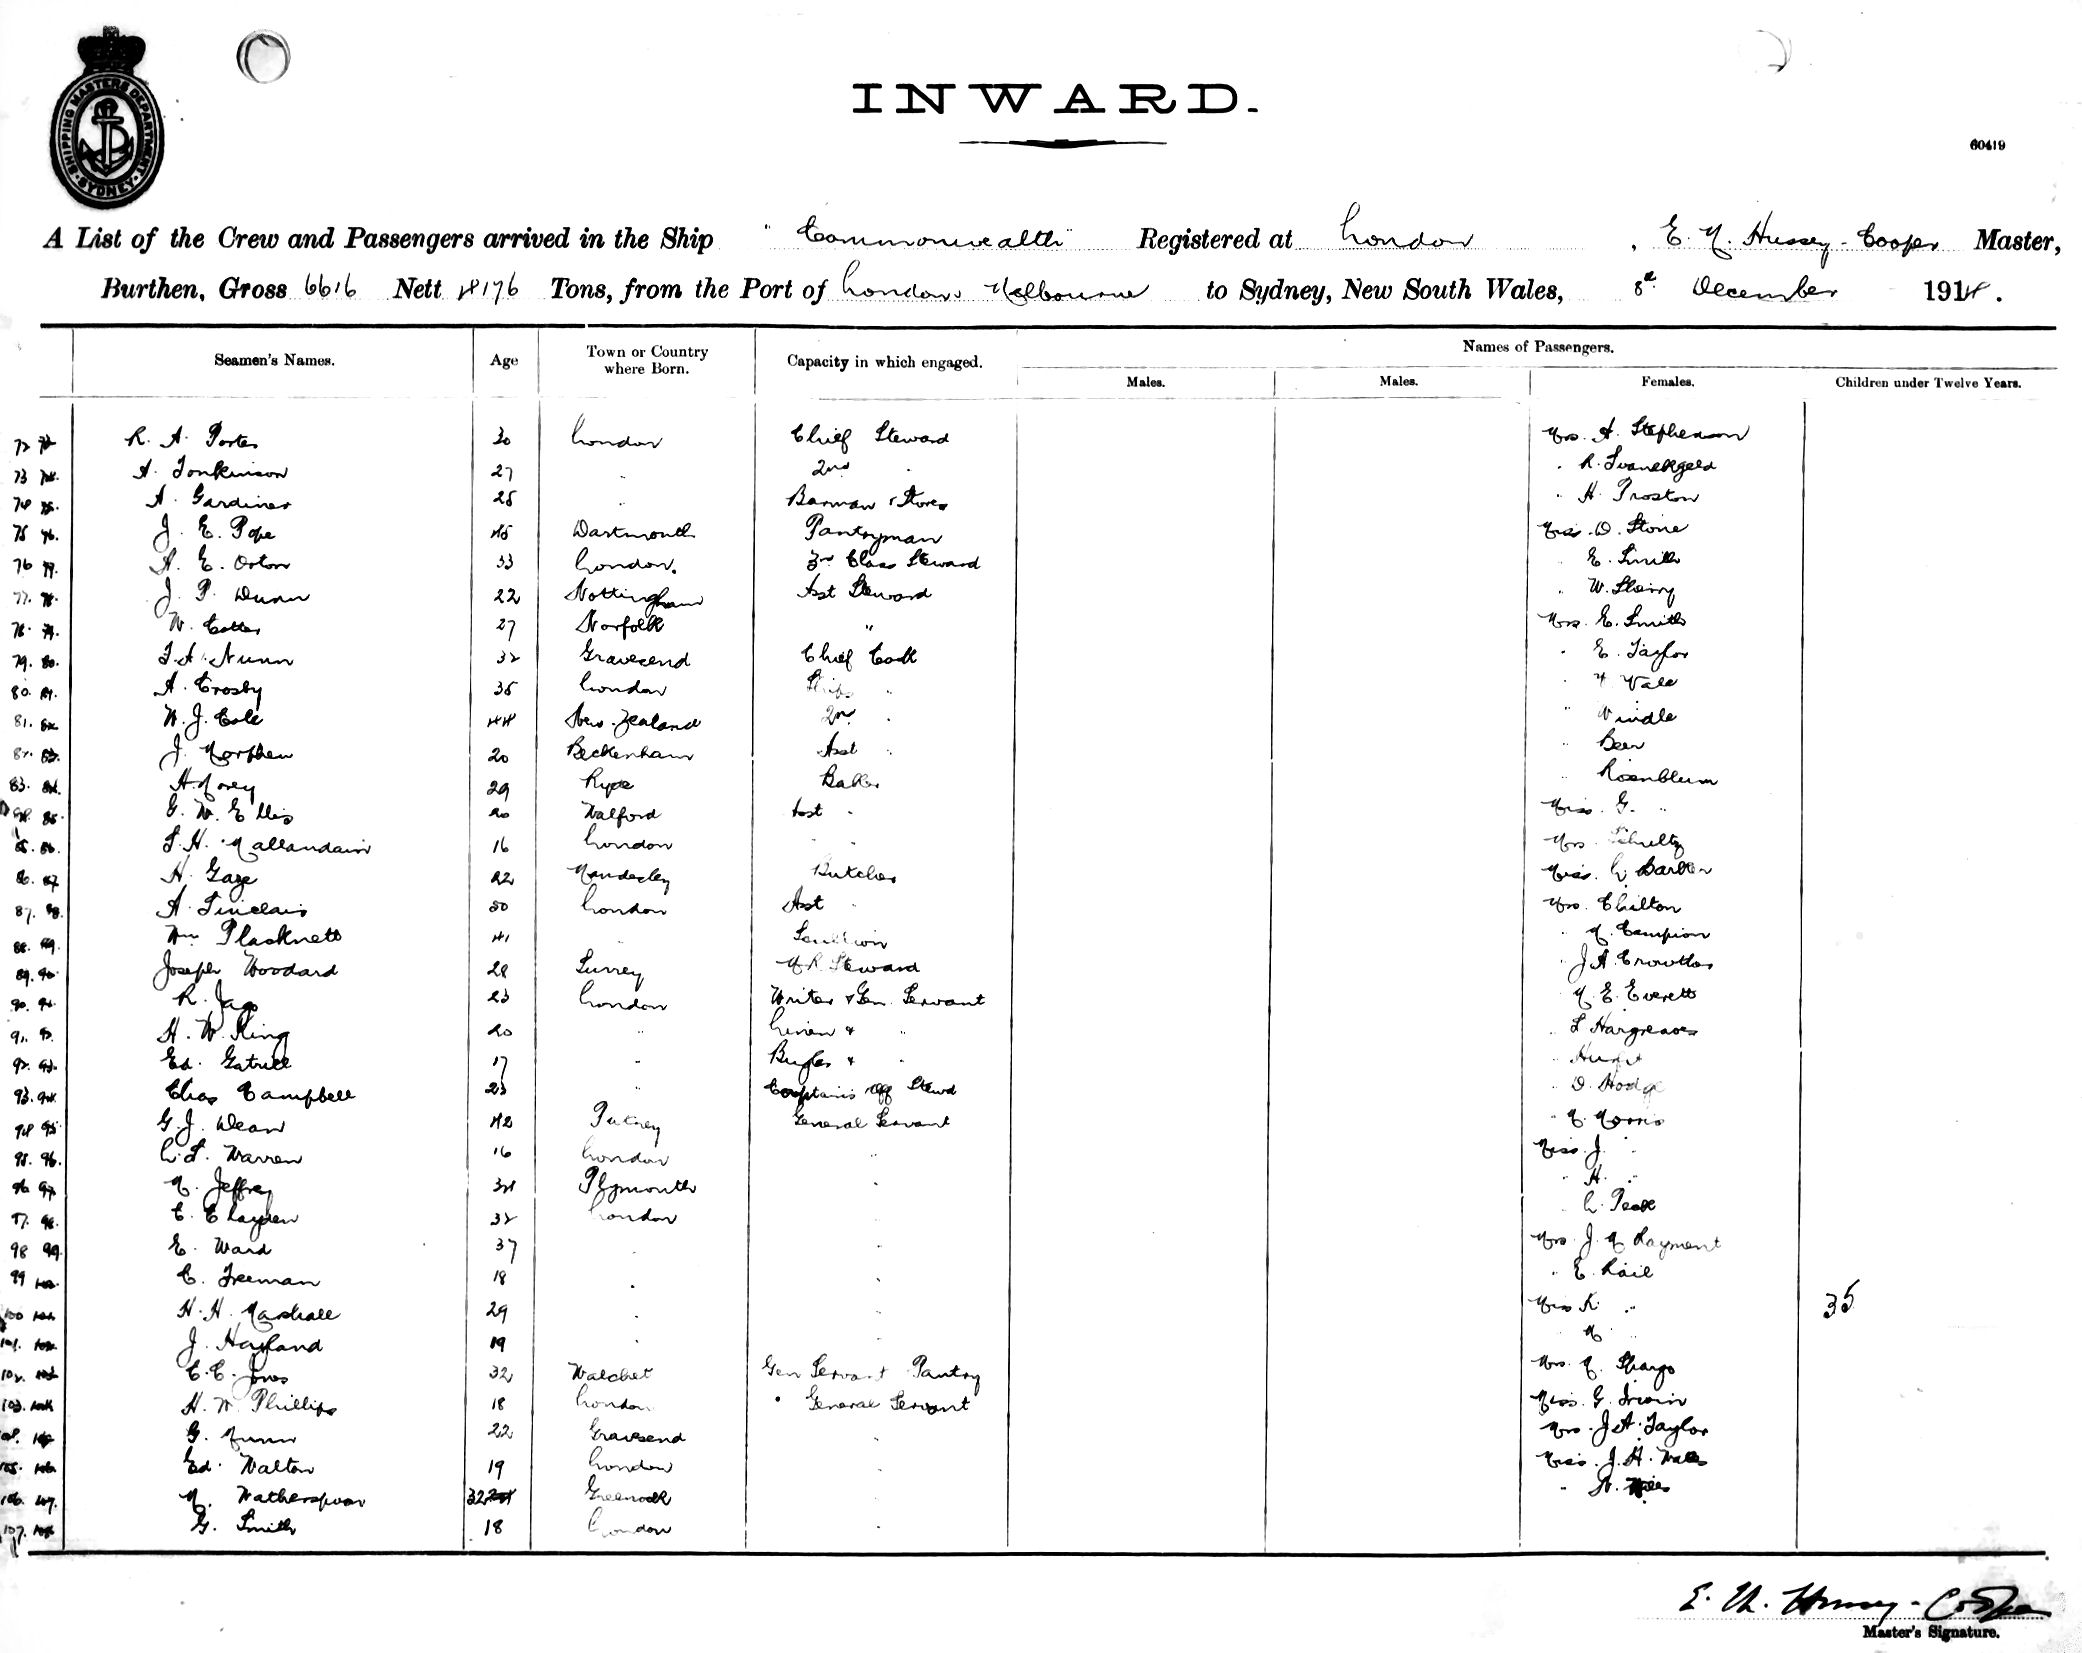 SHIPPING MASTERS DEPARTMENT
SYDNEY
INWARD.
60419
A List of the Crew and Passengers arrived in the Ship "Commonwealth" Registered at London , E. M. Hussey-Cooper Master,
Burthen, Gross 6616 Nett 4176 Tons, from the Port of London Melbourne to Sydney, New South Wales, 8th December 1914.
Seamen's Names. Age Town or Country where Born. Capacity in which engaged. Names of Passengers.
Males. Males. Females. Children under Twelve Years.
72 R. A. Porter 30 London Chief Steward Mrs. A. Stephenson
73 A. Tonkinson 27 " 2nd " " R.
74 A. Gardiner 25 " Barman & Stores " H. Proston
75 76. J. E. Pope 45 Dartmouth Pantryman Miss. D. Stone
76 77. A. E. Orton 33 London. 3rd Class Steward " E. Smith
77. 78. J. P. Dunn 22 Nottingham Asst Steward " W.
78. 79. W. Cotter 27 Norfolk " Mrs. E. Smith
79. 80. F. A. Nunn 32 Gravesend Chief Cook " E. Taylor
80. 81. A. Crosby 35 London Ships " " Vale
81. 82 W. J. Cole 44 New Zealand 2nd " " Windle
82. 83. J. Morphew 20 Beckenham Asst " " Beer
83. 84. H. Morey 29 Ryde Baker " Rosenblum
84. 85. G. W. Ellis 20 Walford Asst " Miss. G. "
85. 86. F. H. Mallandain 16 London " " Mrs. Schultz
86. 87 H. Gage 22 Butcher Miss. L. Barker
87. 88. A. Sinclair 50 London Asst " Mrs. Chilton
88. 89. Wm Placknett 41 " Scullion " M. Campion
89. 90. Joseph Woodard 28 Surrey M. R. Steward " J A Crowther
90. 91. R. Jago 23 London Writer & Gen. Servant " M. E. Everett
91. 92. H. W. King 20 " Linen & " " L Hargreaves
92. 93. Ed. Gatrill 17 " Bugler & " "
93. 94. Chas Campbell 23 " Captains Off Stewd " D. Hodge
94 95 G. J. Dean 42 Putney General Servant " M. Morris
95. 96. L. F. Warren 16 London " Miss. J. "
96 97 M. Jeffrey 34 Plymouth " " H. "
97. 98. C. Clayden 32 London " " L. Peak
98 99. E. Ward 37 " " Mrs. J. M Rayment
99 100 C. Freeman 18 " " " E. Rail
100 101 H. H. Marshall 29 " " Miss K " 35
101. 102 J. Hayland 19 " " " M "
102. 103 C. C. Jones 32 Watchet Gen Servant Pantry Mrs. M. Spargo
103. 104 H. W. Phillips 18 London " General Servant Miss. G. Irwin
104. 105 G. Munn 22 Gravesend " Mrs. J A. Taylor
105. 106 Ed. Walton 19 London " Miss. J. H. Wales
106. 107. M. Watherspoon 32 Greenock " "
107. 108 G. Smith 18 London "
E. M. Hussey-Cooper
Master's Signature.